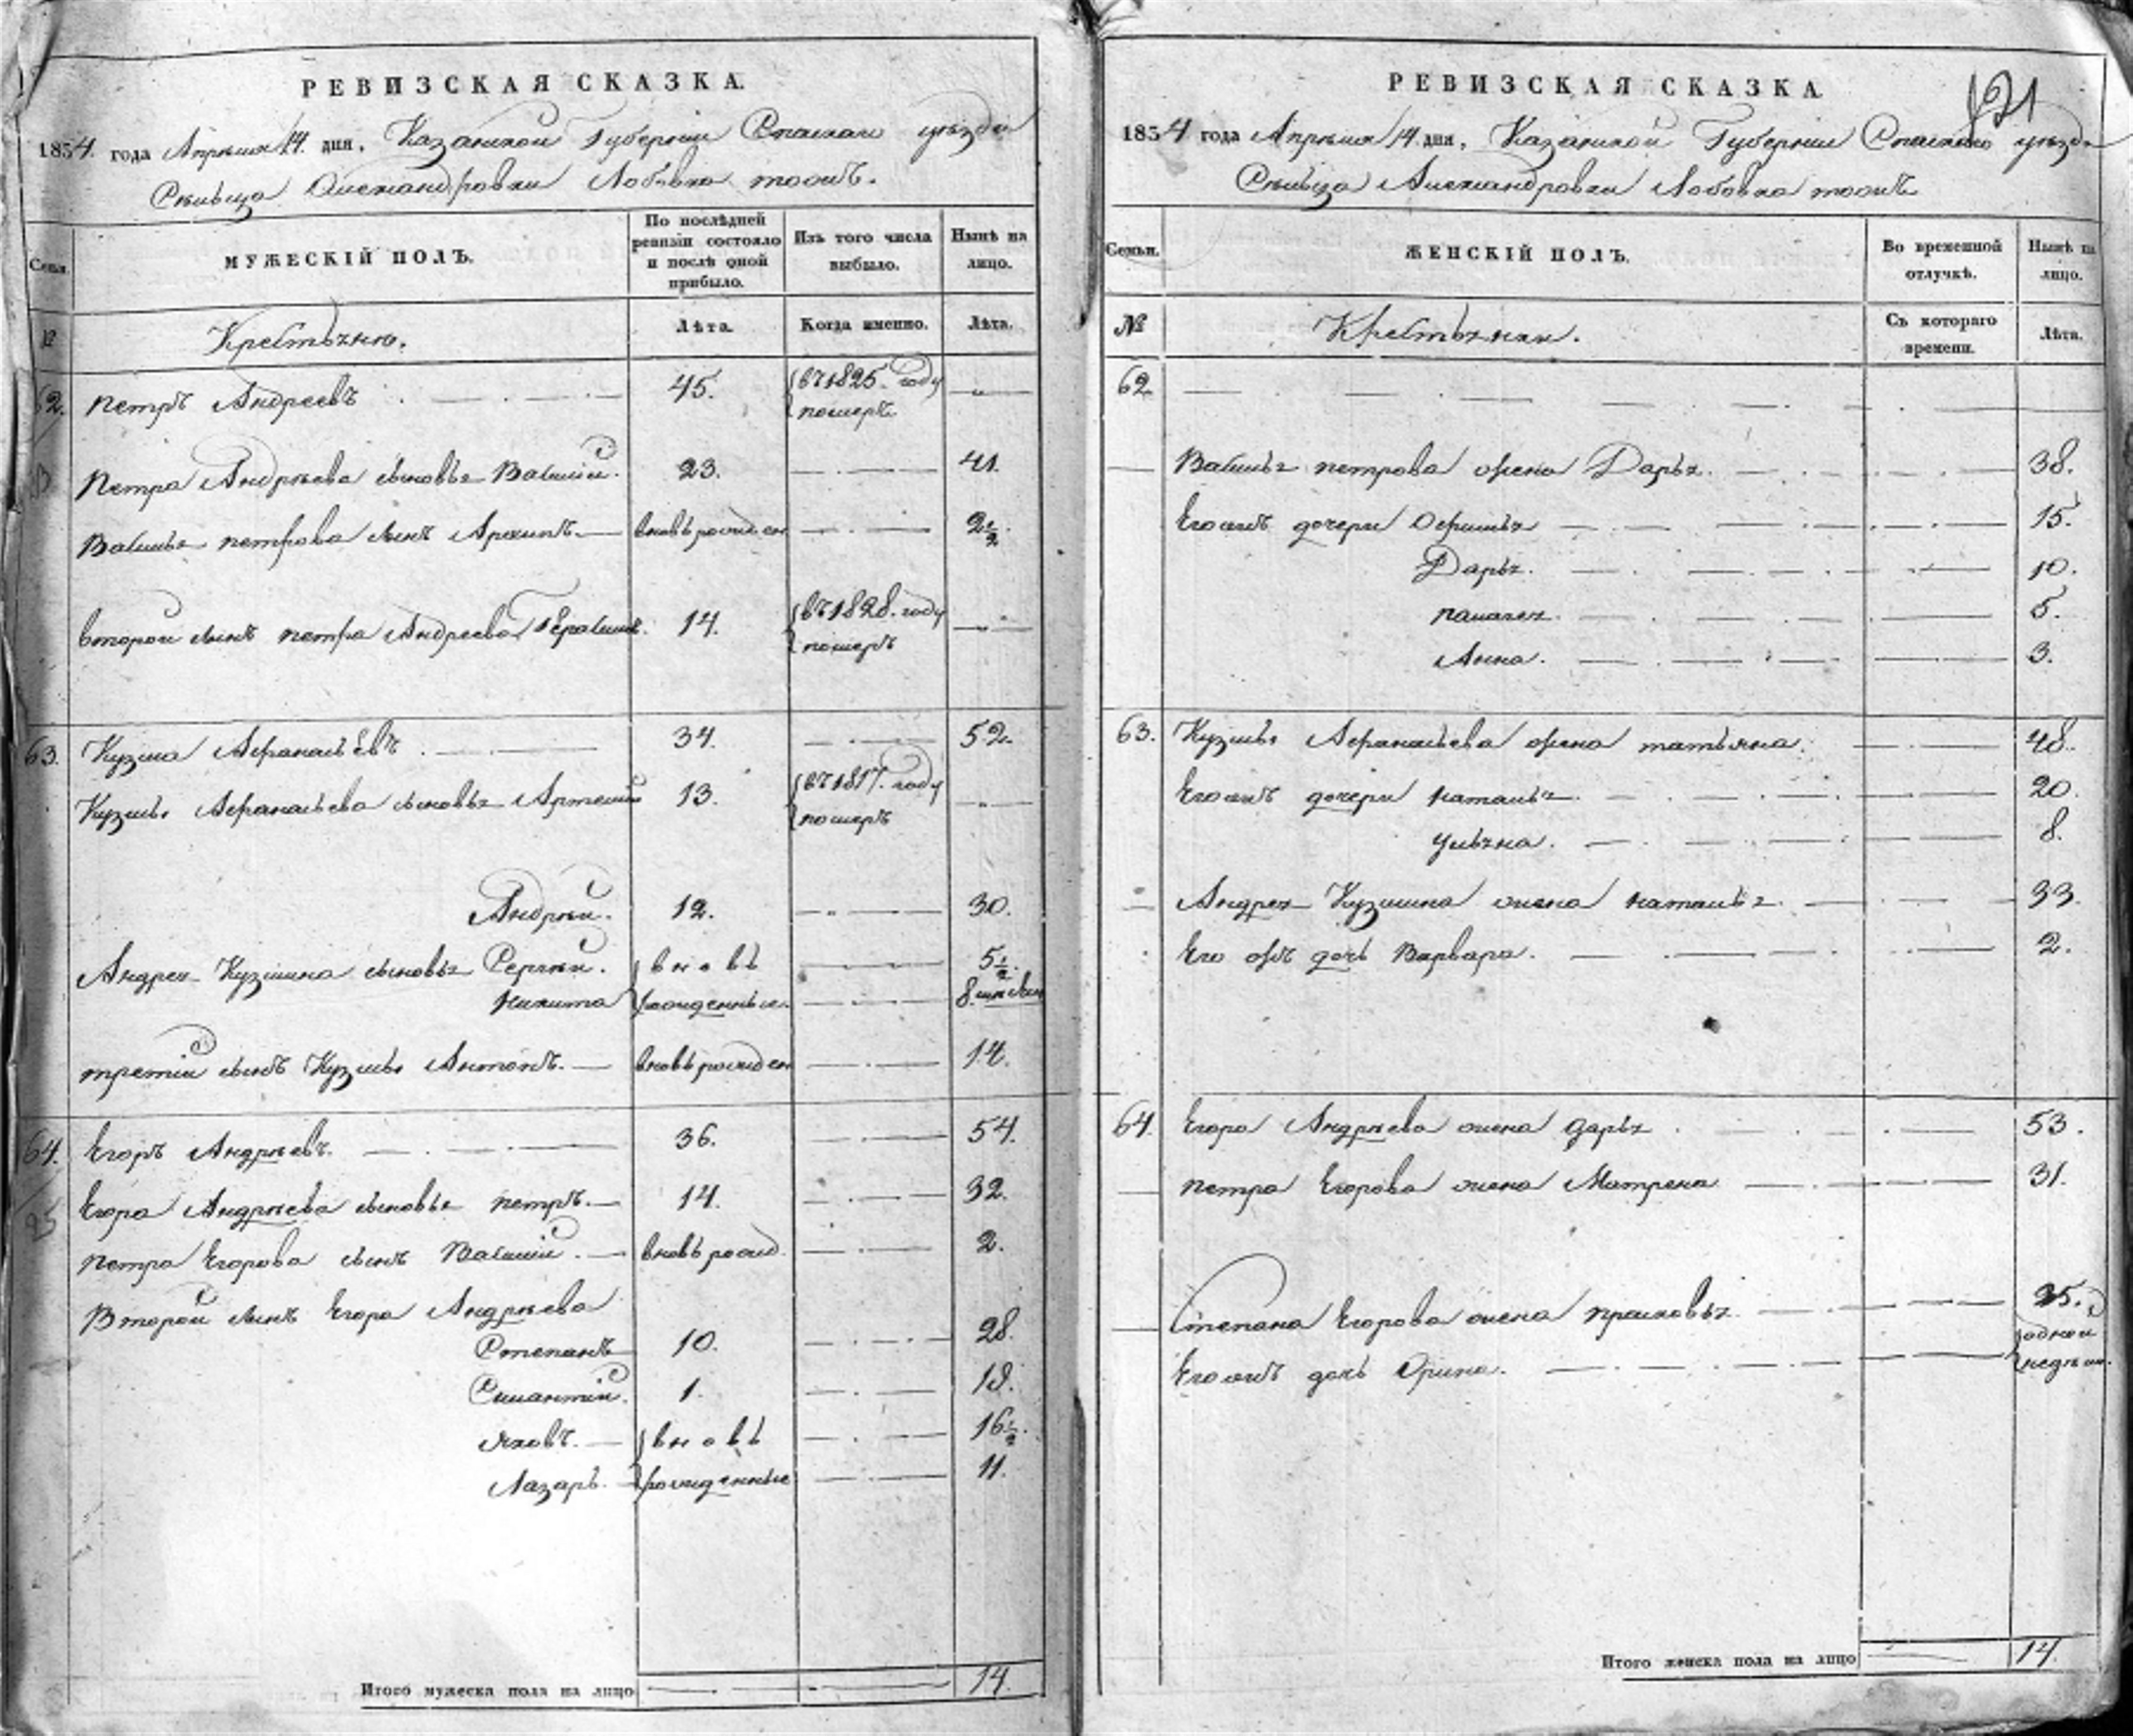 РЕВИЗСКАЯ СКАЗКА.
1834. года Апреля 14. дня, Казанской Губернии Спаскаго уезда
Сельца Александровки Лобовка тожъ.
Семьи.
МУЖЕСКІЙ ПОЛЪ.
По послѣдней ревизіи состояло и послѣ оной прибыло.
Изъ того числа выбыло.
Нынѣ на лицо.
№
Крестьяня.
Лѣта.
Когда именно.
Лѣта.
62. Петръ Андреевъ 45. въ 1825. году
померъ
Петра Андрѣева сыновья Василій. 23. 41.
Василья Петрова сынъ Архипъ. вновь рожден 2 1/2.
второй сынъ Петра Андреева Герасимъ. 14. въ 1828. году
померъ
63. Кузма Афанасьевъ 34. 52.
Кузмы Афанасьева сыновья Артемій 13. въ 1817. году
померъ
Андрѣй. 12. 30.
Андрея Кузмина сыновья Сергѣй. вновь 5 1/2.
Никита рожденные. 8.
третій сынъ Кузмы Антонъ. вновь рожден 14.
64. Егоръ Андрѣевъ. 36. 54.
Егора Андрѣева сыновья Петръ. 14. 32.
Петра Егорова сынъ Василій. вновь рожд. 2.
Второй сынъ Егора Андрѣева
Степанъ 10. 28.
1. 18.
Яковъ. вновь 16 1/2.
Лазарь. рожденные 11.
Итого мужеска пола на лицо 14.
РЕВИЗСКАЯ СКАЗКА
121
1834 года Апреля 14. дня, Казанской Губернии Спаскаго уезда
Сельца Александровки Лобовка тожъ
Семьи.
ЖЕНСКІЙ ПОЛЪ.
Во временной отлучкѣ.
Нынѣ на лицо.
№
Крестьянки.
Съ котораго времени.
Лѣта.
62.
Василья Петрова жена Дарья. 38.
Его жъ дочери Офимья 15.
Дарья. 10.
Палагея. 5.
Анна. 3.
63. Кузмы Афанасьева жена татьяна. 48.
Его жъ дочери Наталья. 20.
Ульяна. 8.
Андрея Кузмина жена Наталья. 33.
Его жъ дочь Варвара. 2.
64. Егора Андрѣева жена Дарья. 53.
Петра Егорова жена Матрена 31.
Степана Егорова жена Прасковья 25.
Его жъ дочь Орина. одной
недѣли.
Итого женска пола на лицо 14.